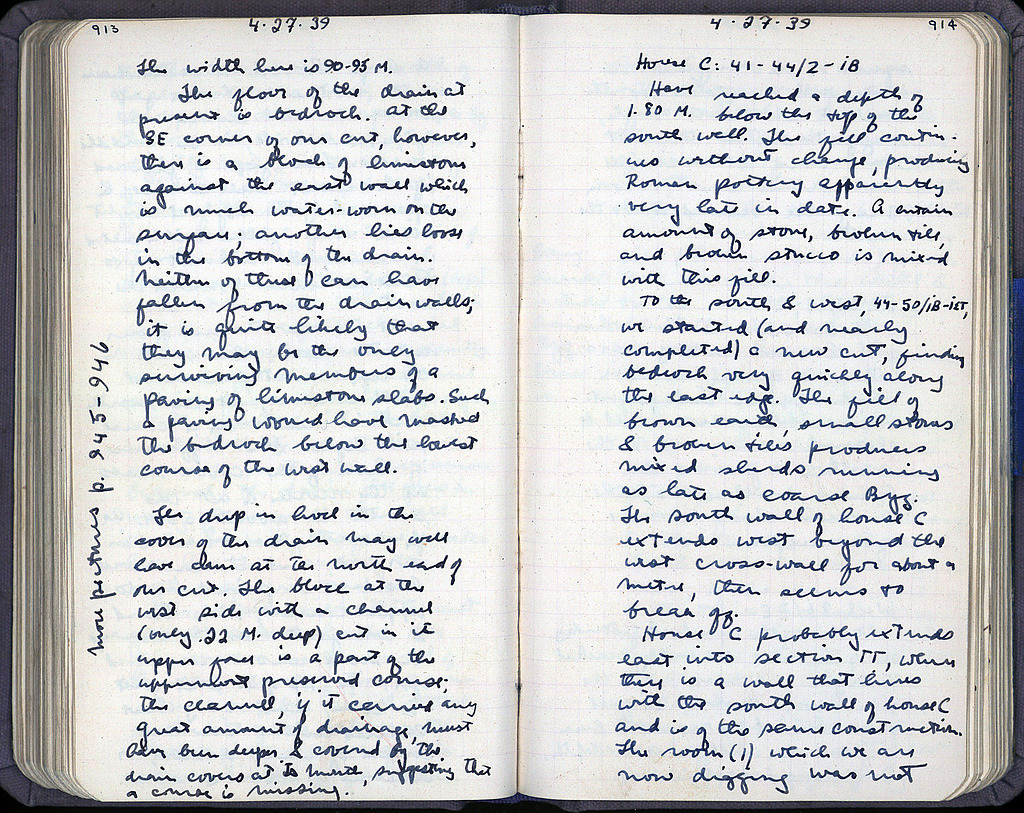 913
4-27-39
The width here is 90-95 M.
The floor of the drain at
present is bedrock. At the
SE corner of our cut, however,
there is a block of limestone
against the east wall which
is much water-worn on the
surface; another lies loose
in the bottom of the drain.
Neither of these can have
fallen from the drain walls;
it is quite likely that
they may be the only
surviving members of a
paving of limestone slabs. Such
a paving would have masked
the bedrock below the lowest
course of the west wall.
The drop in level in the
cover of the drain may well
have been at the north end of
our cut. The block at the
west side with a channel
(only .22 M. deep) cut in it
upper face is a part of the
uppermost preserved course;
the channel, if it carried any
great amount of drainage, must
have been deeper & covered by the
drain covers at its mouth, suggesting that
a course is missing.
more pictures p. 945-946
4-27-39
914
House C: 41-44/2-IB
Have reached a depth of
1.80 M. below the top of the
south wall. The fill contin-
ues without change, producing
Roman pottery apparently
very late in date. A certain
amount of stone, broken tile,
and broken stucco is mixed
with this fill.
To the south & west, 44-50/IB-IET,
we started (and nearly
completed) a new cut, finding
bedrock very quickly along
the east edge. The fill of
brown earth, small stones
& broken tiles produces
mixed sherds running
as late as coarse Byz.
The south wall of house C
extends west beyond the
west cross-wall for about a
metre, then seems to
break off.
House C probably extends
east into section ΠΠ, where
there is a wall that lines
with the south wall of house C
and is of the same construction.
The room (1) which we are
now digging was not